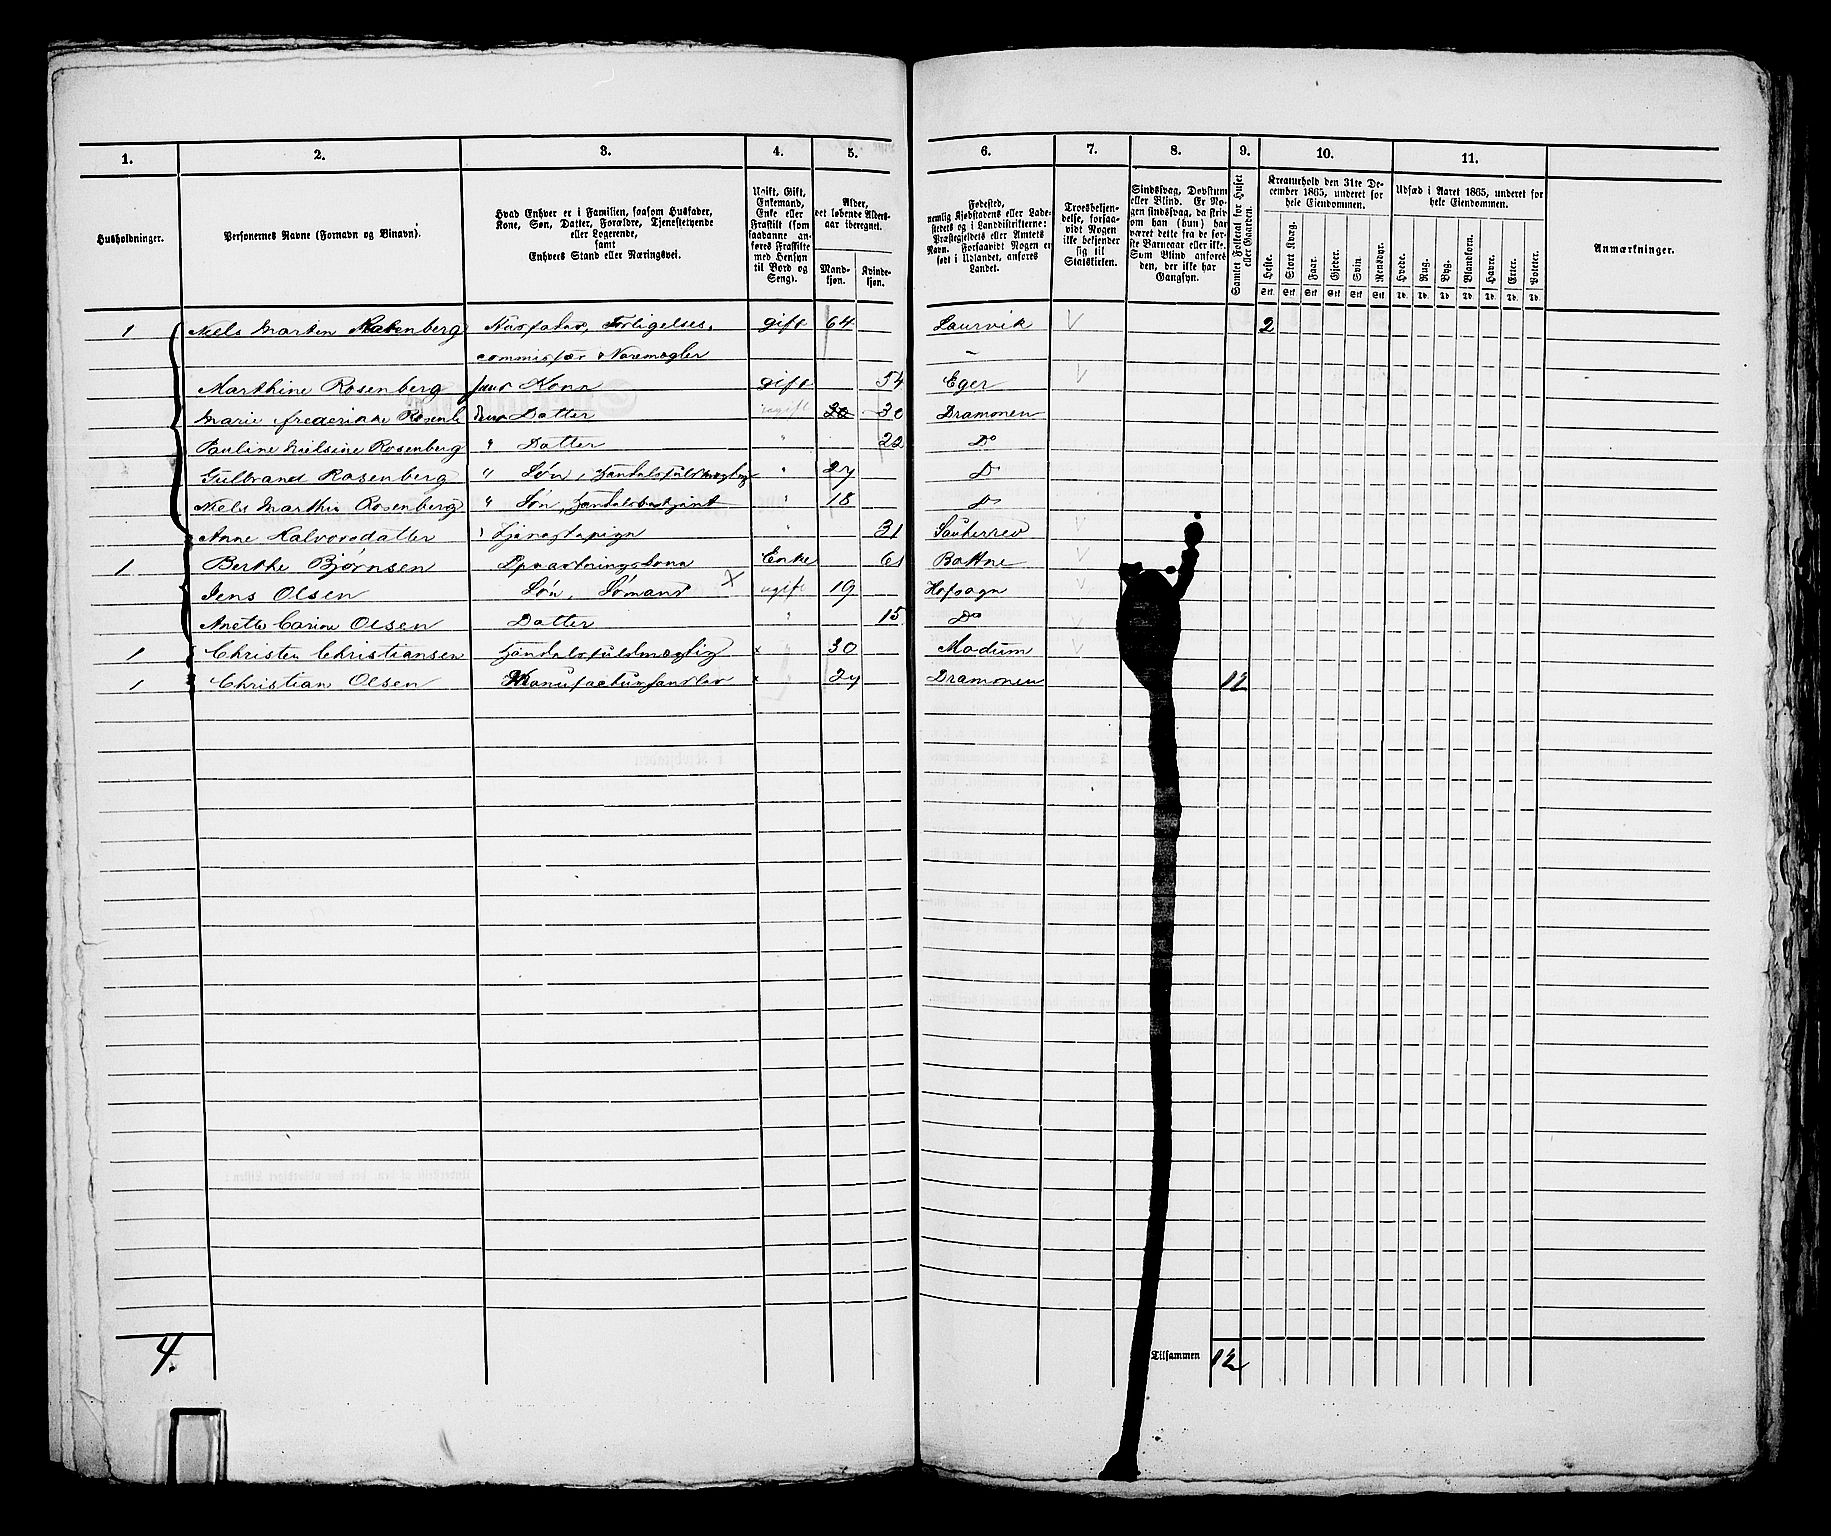 1. 2. 3. 4. 5. 6. 7. 8. 9. 10. 11.
Husholdninger.
Personernes Navne (Fornavn og Binavn).
Hvad Enhver er i Familien, saasom Husfader, Kone, Søn, Datter, Forældre, Tjenestetyende eller Logerende, samt Enhvers Stand eller Næringsvei.
Ugift, Gift, Enkemand, Enke eller Fraskilt (som saadanne anføres Fraskilte med Hensyn til Bord og Seng).
Alder, det løbende Alders-aar iberegnet.
Mand-kjøn. Kvinde-kjøn.
Fødested, nemlig Kjøbstadens eller Ladestedets og i Landdistrikterne: Præstegjeldets eller Amtets Navn. Forsaavidt Nogen er født i Udlandet, anføres Landet.
Troesbekjendelse, forsaavidt Nogen ikke bekjender sig til Statskirken.
Sindssvag, Døvstum eller Blind. Er Nogen sindssvag, da skriv om han (hun) har været dette fra de første Barneaar eller ikke. Som Blind anføres den, der ikke har Gangsyn.
Samlet Folketal for Huset eller Gaarden.
Kreaturhold den 31te December 1865, underet for hele Eiendommen.
Heste. Stort Kvæg. Faar. Gjeder. Svin. Rensdyr.
Udsæd i Aaret 1865, underet for hele Eiendommen.
Hvede. Rug. Byg. Blandkorn. Havre. Erter. Poteter.
Anmærkninger.
Stk. Stk. Stk. Stk. Stk. Stk. Td. Td. Td. Td. Td. Td. Td.
1 Niels Marten Rosenberg Husfader, Forligelses- gift 64 Laurvik 2
commissær & Varemægler
Marthine Rosenberg hans Kone gift 54 Eger
Marie Frederikke Rosenb Deres Datter ugift 30 30 Drammen
Pauline Nielsine Rosenberg " Datter " 22 Do
Gulbrand Rosenberg " Søn, Handelsfuldmægtig " 27 Do
Niels Marthin Rosenberg " Søn, Handelsbetjent " 18 Do
Anne Halvorsdatter Tjenestepige " 31
1 Berthe Bjørnsen Opvartningskone Enke 61 Bottne
Jens Olsen Søn, Sømand X ugift 19 Hofsogn
Anette Carine Olsen Datter " 15 Do
1 Christen Christiansen Handelsfuldmægtig x 30 Modum
1 Christian Olsen Manufacturhandler x 27 Drammen 12
4.
Tilsammen 12